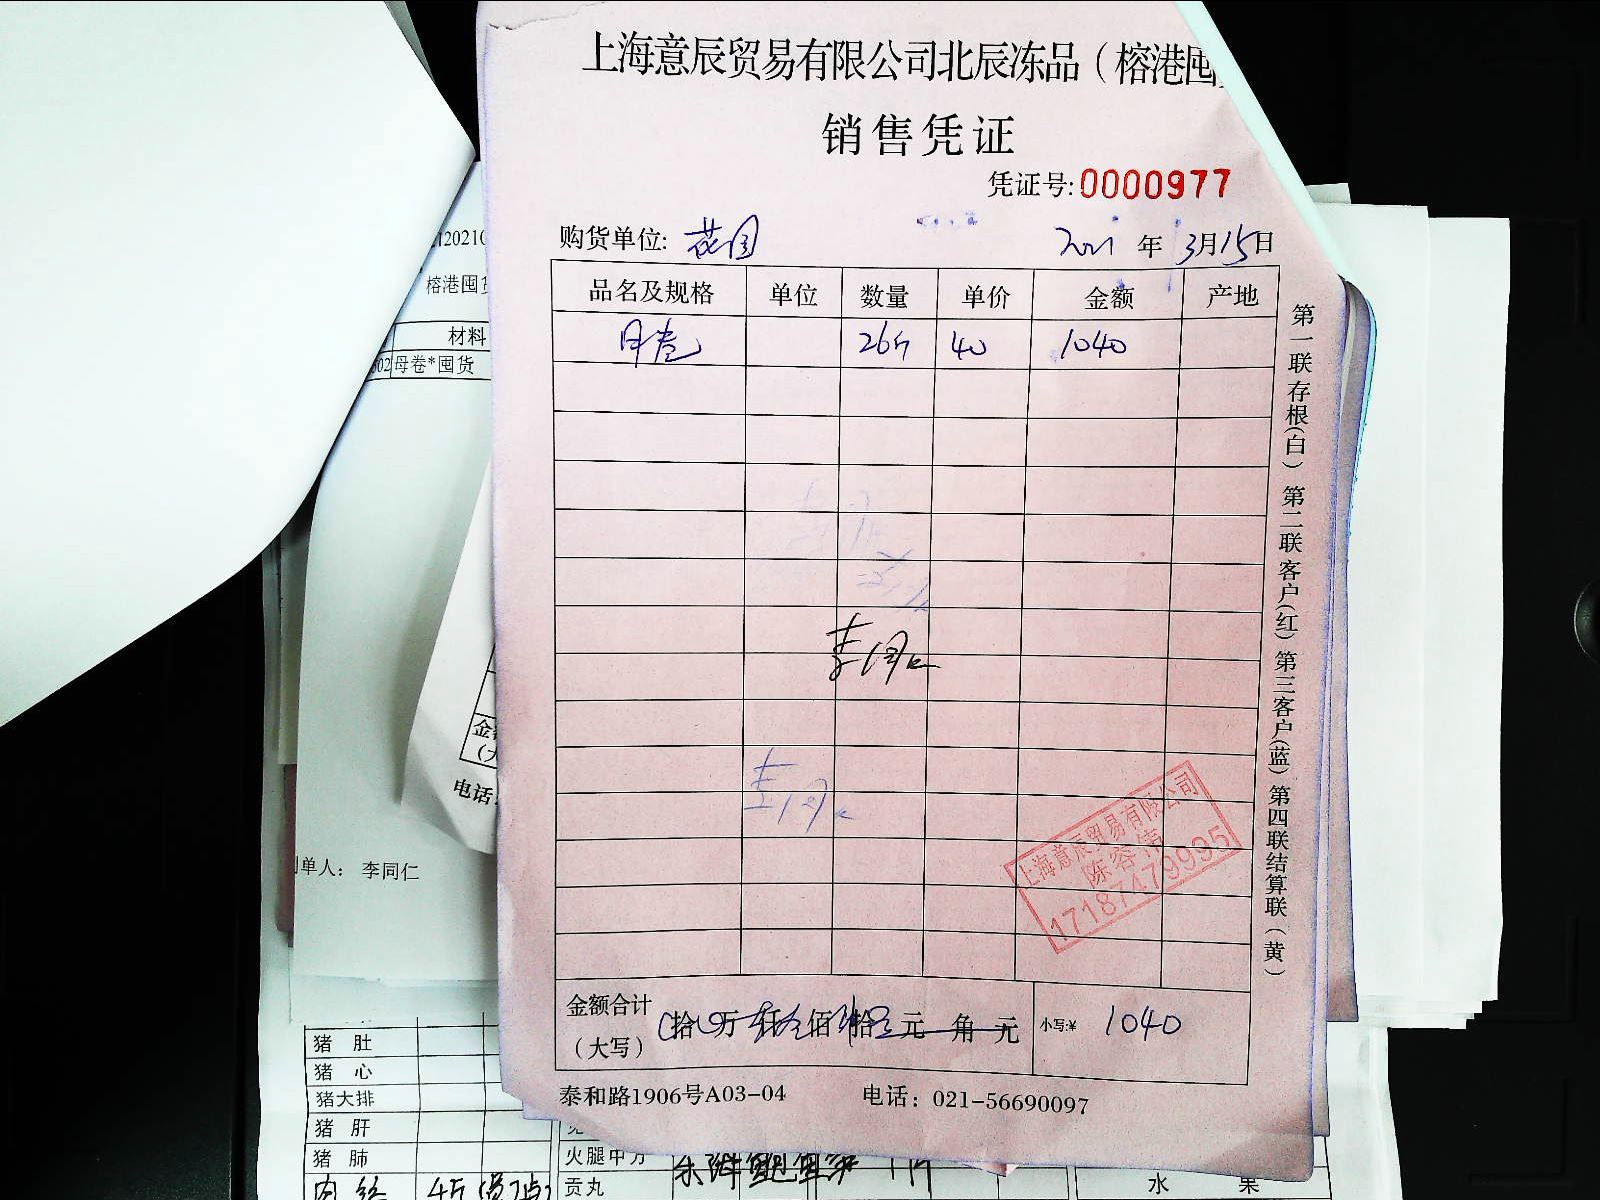 上海意辰贸易有限公司北辰冻品（榕港囤
销售凭证
凭证号:0000977
购货单位: 花园 2021 年 3月15日
品名及规格 单位 数量 单价 金额 产地
母卷 26斤 40 1040
李同仁
李同仁
上海意辰贸易有限公司
陈容
17187479935
金额合计
（大写） 拾 万 仟 佰 拾 元 角 元 小写:¥ 1040
泰和路1906号A03-04 电话：021-56690097
第一联存根(白) 第二联客户(红) 第三客户(蓝) 第四联结算联(黄)
榕港囤
材料
母卷*囤货
电话:
单人： 李同仁
猪 肚
猪 心
猪大排
猪 肝
猪 肺
火腿中方
贡丸
水 果